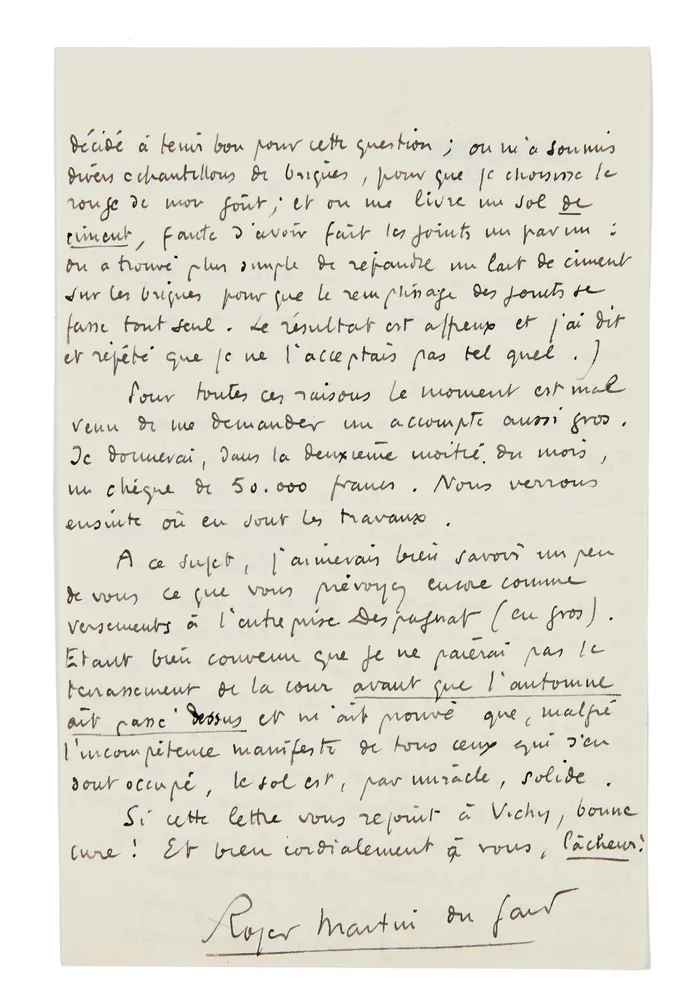 décidé à tenir bon pour cette question ; on m'a soumis
divers échantillons de briques, pour que je choisisse le
rouge de mon goût ; et on me livre un sol de
ciment, faute d'avoir fait les joints un par un :
on a trouvé plus simple de répandre un lait de ciment
sur les briques pour que le remplissage des joints se
fasse tout seul. Le résultat est affreux et j'ai dit
et répété que je ne l'acceptais pas tel quel.)
Pour toutes ces raisons le moment est mal
venu de me demander un accompte aussi gros.
Je donnerai, dans la deuxième moitié du mois,
un chèque de 50.000 francs. Nous verrons
ensuite où en sont les travaux.
A ce sujet, j'aimerais bien savoir un peu
de vous ce que vous prévoyez encore comme
versements à l'entreprise Despagnat (en gros).
Etant bien convenu que je ne paierai pas le
terrassement de la cour avant que l'automne
ait passé dessus et m'ait prouvé que, malgré
l'incompétence manifeste de tous ceux qui s'en
sont occupé, le sol est, par miracle, solide.
Si cette lettre vous rejoint à Vichy, bonne
cure ! Et bien cordialement à vous, lâcheur !
Roger Martin du Gard